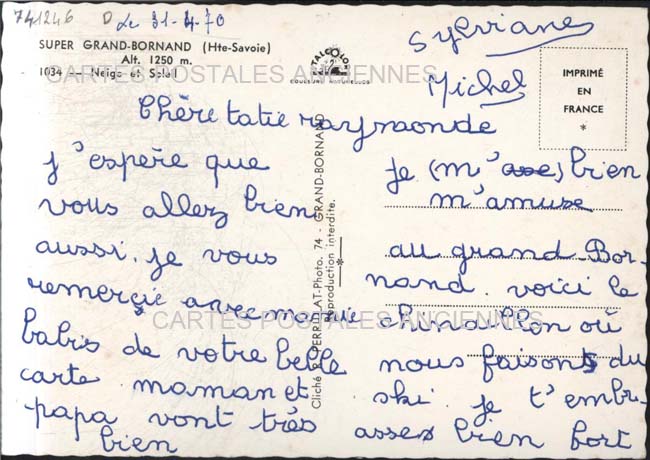 741246 D Le 31-4-70
SUPER GRAND-BORNAND (Hte-Savoie)
Alt. 1250 m.
1034 — Neige et Soleil
CARTES POSTALES ANCIENNES
IMPRIMÉ
EN
FRANCE
*
Chère tatie raymonde
j'espère que
vous allez bien
aussi. je vous
remerçie avec
babis de votre belle
carte maman et
papa vont très
bien
Sylviane
Michel
je (m'ase) bien
m'amuse
au grand-Bor-
nand. voici le
chinaillon où
nous faisons du
ski. je t'embr-
asse bien fort
Reproduction interdite.
CARTES POSTALES ANCIENNES